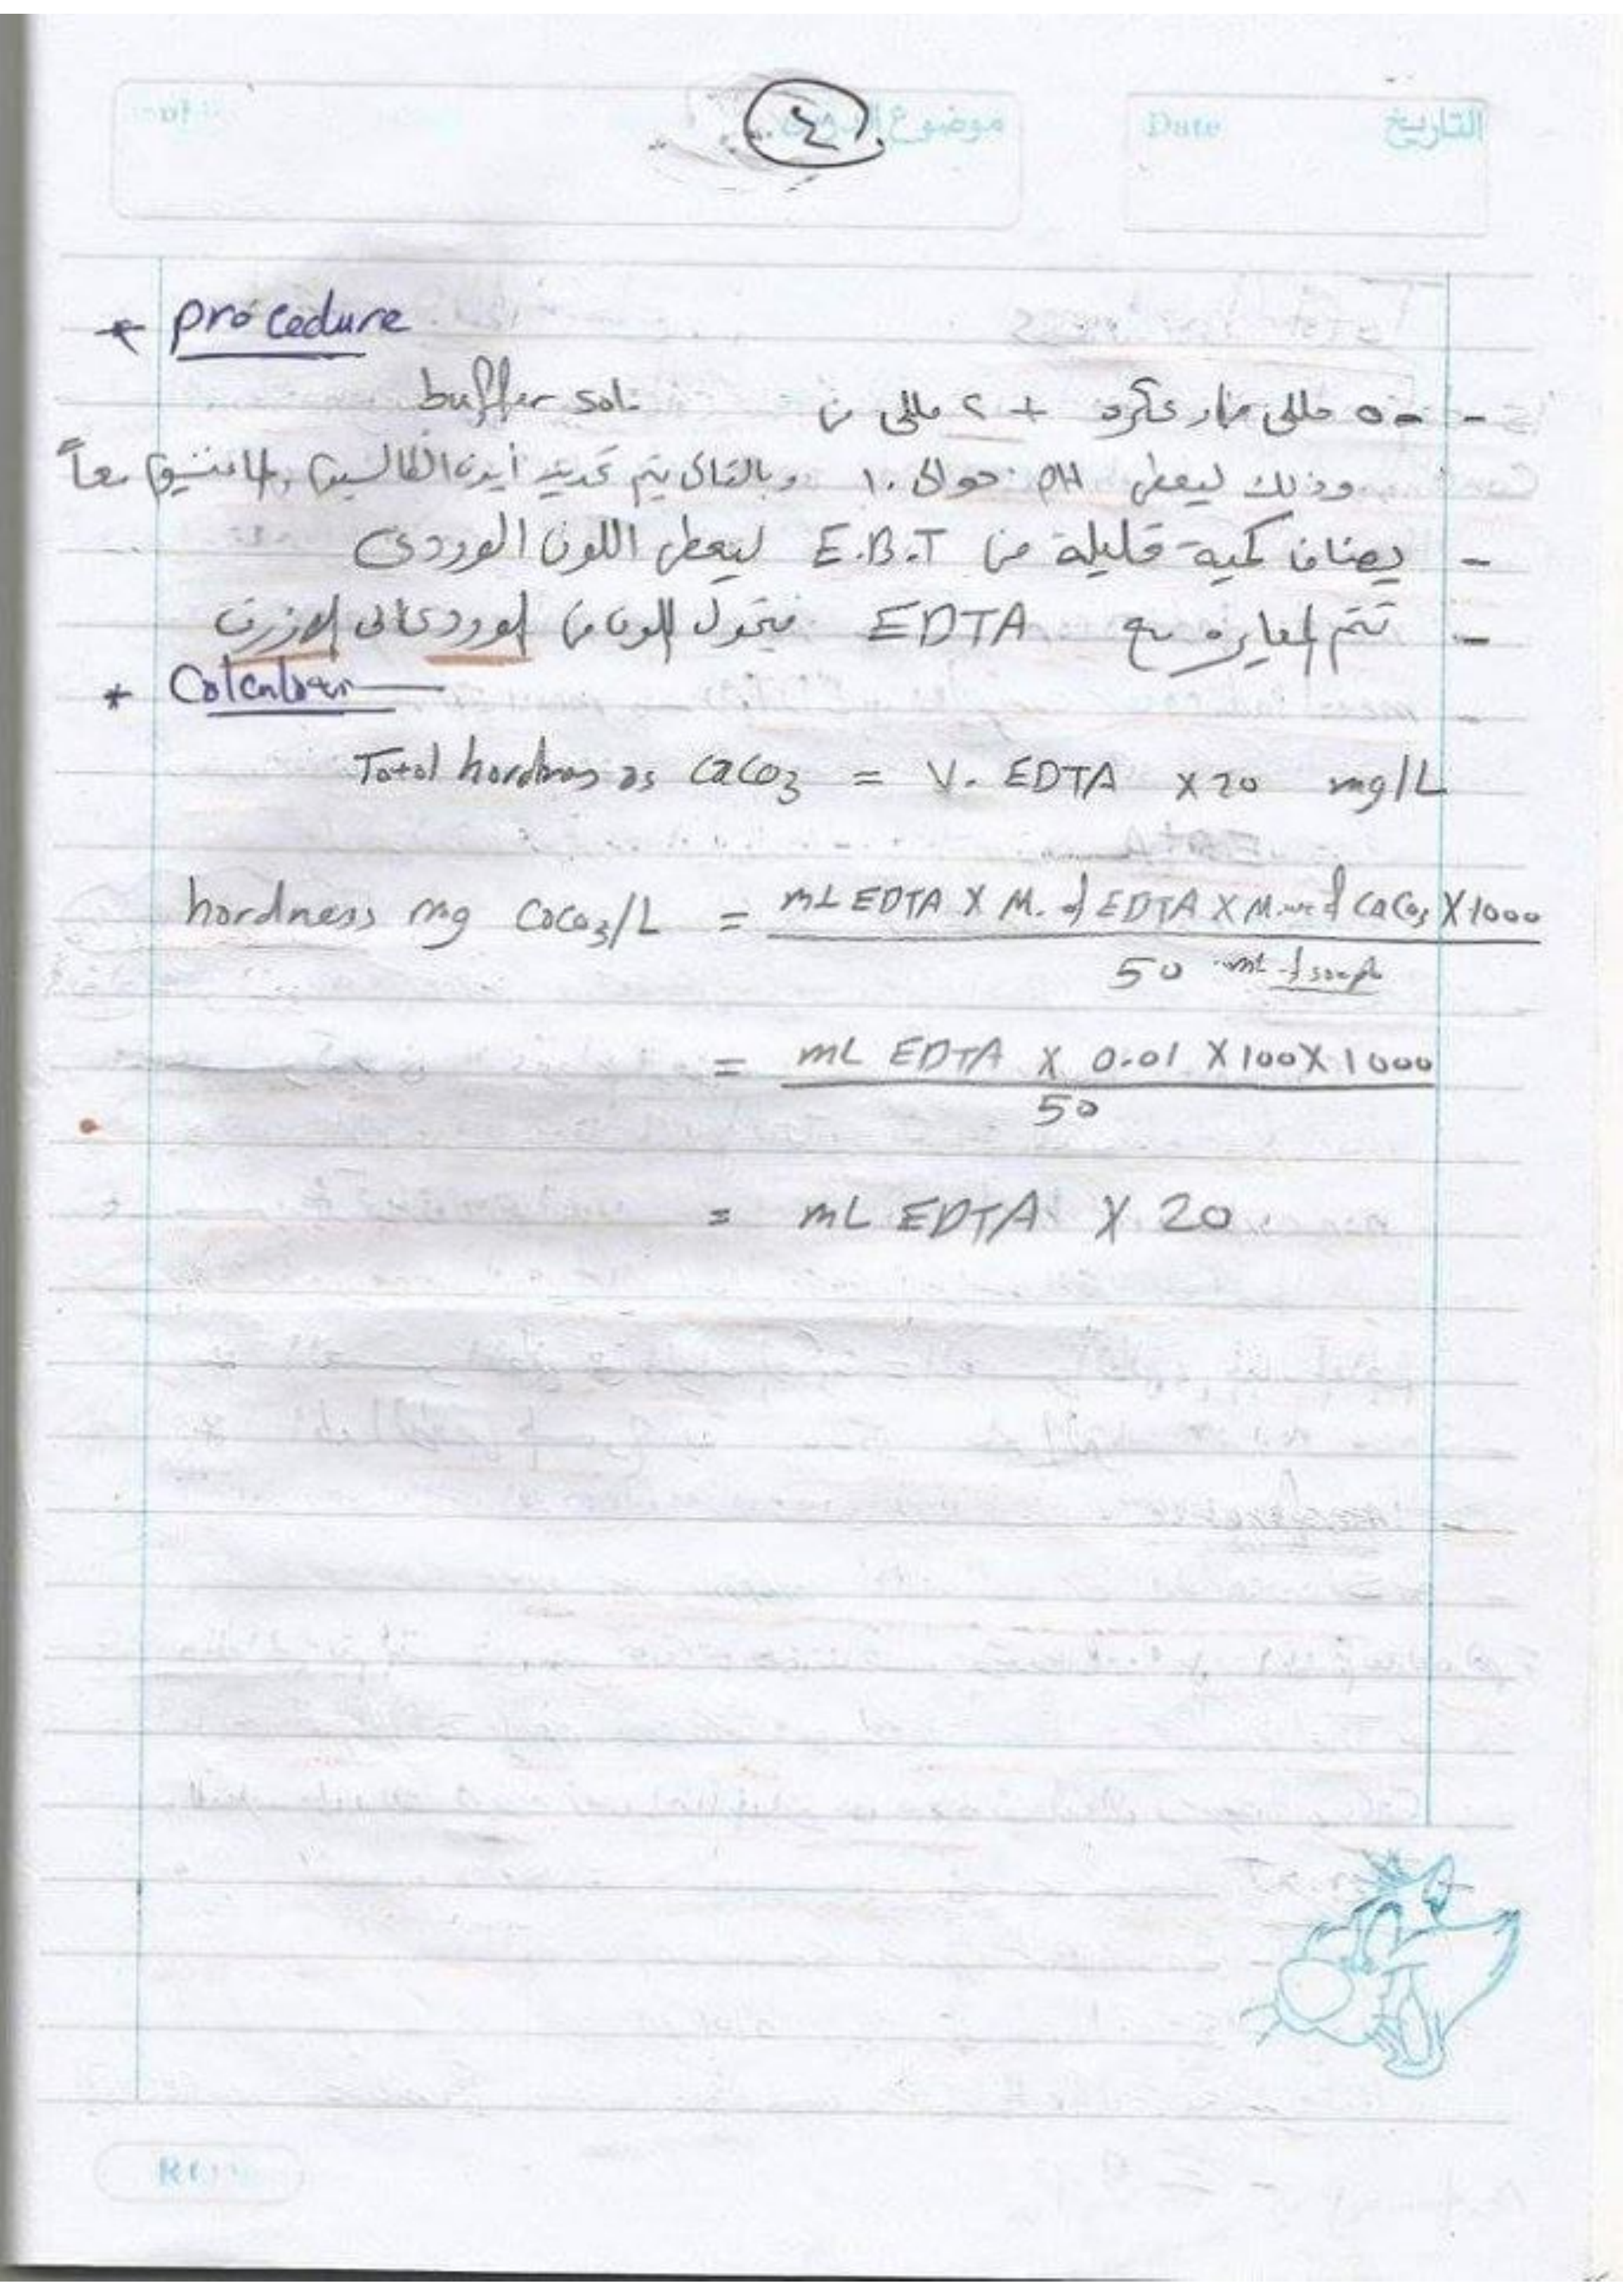 التاريخ Date موضوع
٤
* procedure
- ٥٠ مللى + ٢ مللى من buffer sol.
وذلك ليعطى PH حوالى ١٠ وبالتالى يتم تحديد أيون الكالسيوم والماغنسيوم معاً
- يضاف كمية قليلة من E.B.T ليعطى اللون الوردى
- تتم المعايره مع EDTA فيتحول اللون من الوردى الى الازرق
*
Total hardness as CaCO3 = V. EDTA x 20 mg/L
hardness mg CaCO3/L = mL EDTA X M. of EDTA X M.wt of CaCO3 X 1000
50 mL of sample
= mL EDTA X 0.01 X 100 X 1000
50
= mL EDTA X 20